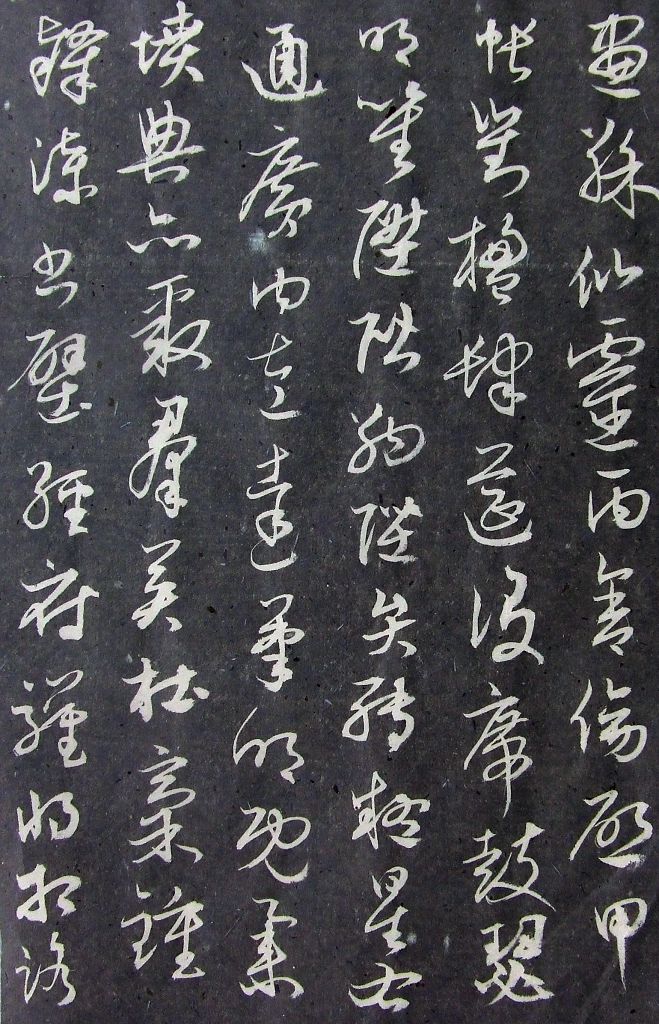 畫綵仙靈丙舍傍啟甲
帳對楹肆筵設席鼓瑟
吹笙陞階納陛弁轉疑星右
通廣內左達承明既集
墳典亦聚羣英杜稾鍾
隸漆書壁經府羅將相路